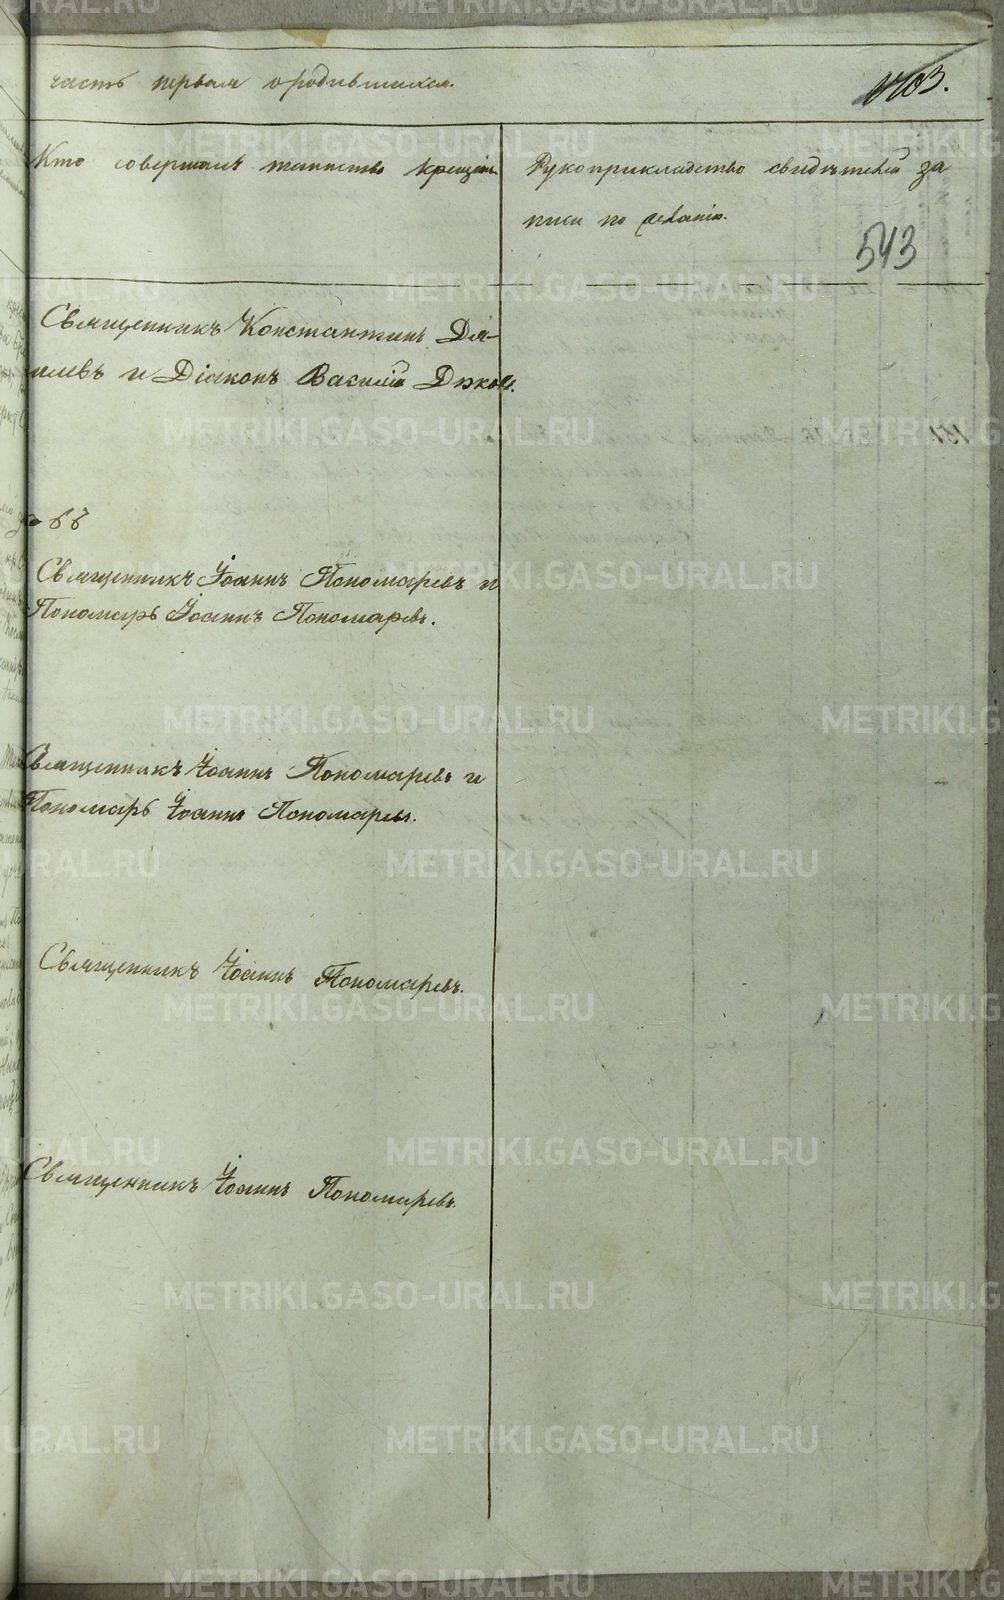 часть первая о родившихся.
1703.
Кто совершалъ таинство крещенія
Рукоприкладство свидѣтелей за
писи по желанію.
543
Священникъ Константинъ
и Діаконъ Василій
Священникъ Іоаннъ Пономаревъ и
Пономарь Іоаннъ Пономаревъ.
Священникъ Іоаннъ Пономаревъ и
Пономарь Іоаннъ Пономаревъ.
Священникъ Іоаннъ Пономаревъ.
Священникъ Іоаннъ Пономаревъ.
METRIKI.GASO-URAL.RU